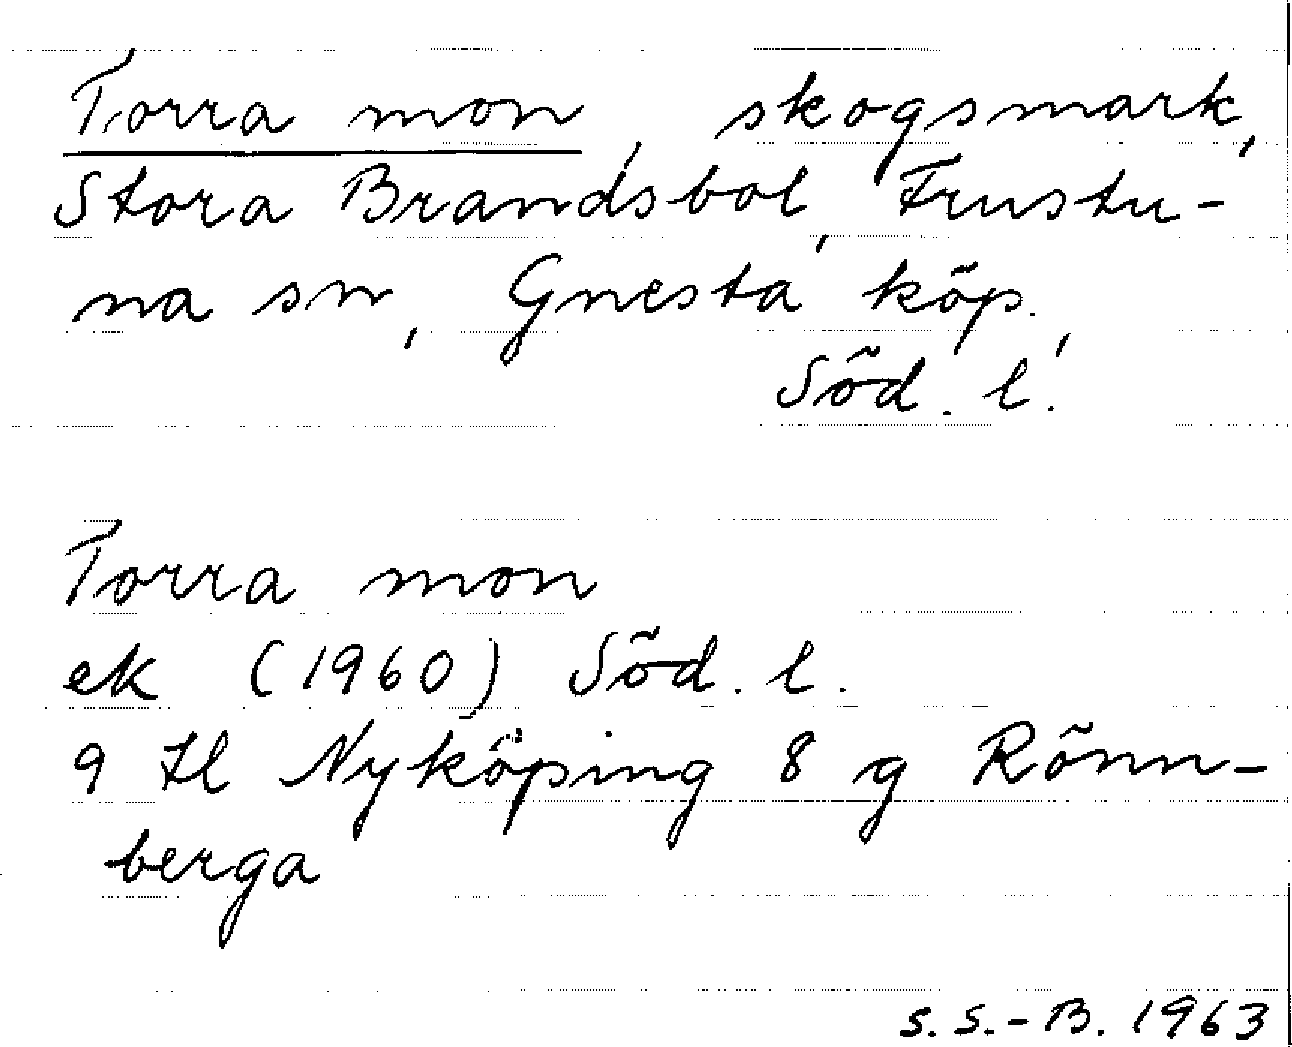 Torra mon, skogsmark,
Stora Brandsbol, Frustu-
na sn, Gnesta köp.,
Söd. l.
Torra mon
ek (1960) Söd. l.
9 Hl Nyköping 8 g Rönn-
berga
S. S.-B. 1963